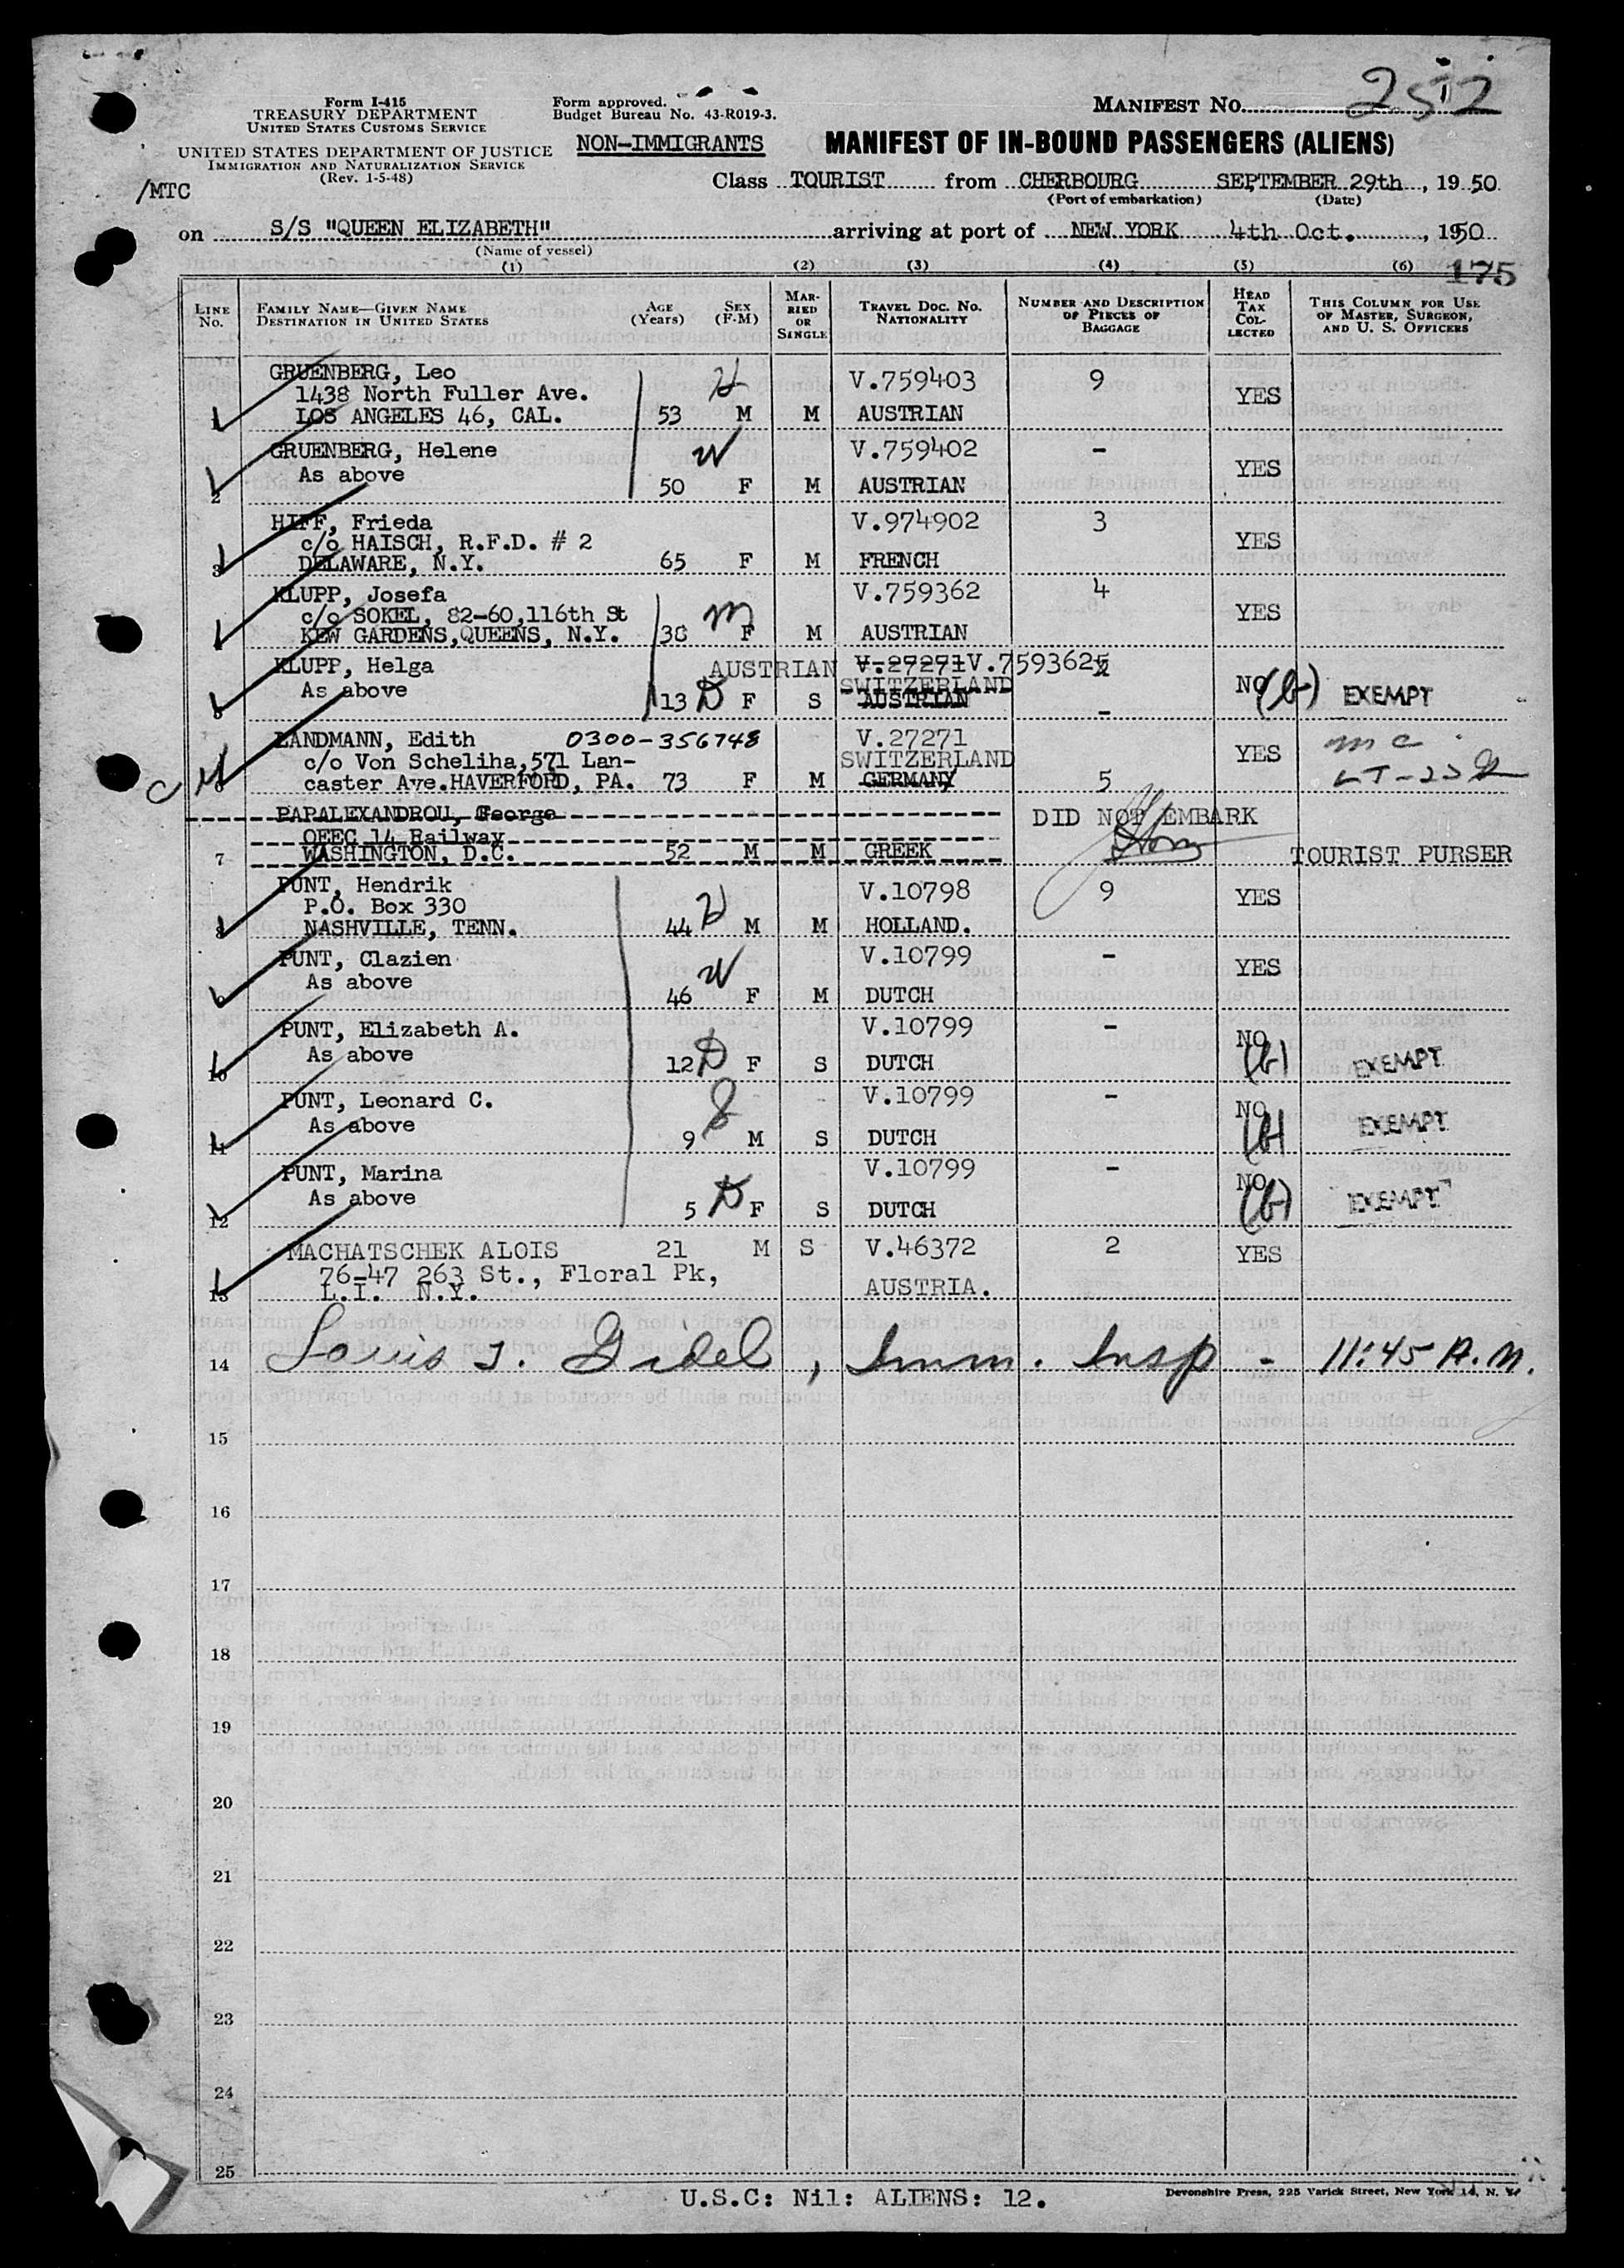 MANIFEST No. 2512
Form I-415
TREASURY DEPARTMENT
UNITED STATES CUSTOMS SERVICE
UNITED STATES DEPARTMENT OF JUSTICE
IMMIGRATION AND NATURALIZATION SERVICE
(Rev. 1-5-48)
/MTC
Form approved.
Budget Bureau No. 43-R019-3.
NON-IMMIGRANTS
MANIFEST OF IN-BOUND PASSENGERS (ALIENS)
Class TOURIST from CHERBOURG SEPTEMBER 29th, 1950
(Port of embarkation) (Date)
on S/S "QUEEN ELIZABETH" arriving at port of NEW YORK 4th Oct., 1950
(Name of vessel)
(1) (2) (3) (4) (5) (6) 175
LINE No. FAMILY NAME—GIVEN NAME DESTINATION IN UNITED STATES AGE (Years) SEX (F-M) MARRIED OR SINGLE TRAVEL DOC. NO. NATIONALITY NUMBER AND DESCRIPTION OF PIECES OF BAGGAGE HEAD TAX COLLECTED THIS COLUMN FOR USE OF MASTER, SURGEON, AND U. S. OFFICERS
GRUENBERG, Leo H V.759403 9
1438 North Fuller Ave. YES
1 LOS ANGELES 46, CAL. 53 M M AUSTRIAN
GRUENBERG, Helene W V.759402 -
As above YES
2 50 F M AUSTRIAN
HIFF, Frieda V.974902 3
c/o HAISCH, R.F.D. # 2 YES
3 DELAWARE, N.Y. 65 F M FRENCH
KLUPP, Josefa V.759362 4
c/o SOKEL, 82-60,116th St m YES
4 KEW GARDENS,QUEENS, N.Y. 38 F M AUSTRIAN
KLUPP, Helga AUSTRIAN V.27271 V.759362
As above SWITZERLAND NO (b) EXEMPT
5 13 D F S AUSTRIAN -
LANDMANN, Edith 0300-356748 V.27271 YES mc
c/o Von Scheliha,571 Lan- SWITZERLAND
6 caster Ave.HAVERFORD, PA. 73 F M GERMANY 5
PAPALEXANDROU, George DID NOT EMBARK
OEEC 14 Railway
7 WASHINGTON, D.C. 52 M M GREEK TOURIST PURSER
PUNT, Hendrik H V.10798 9 YES
P.O. Box 330
8 NASHVILLE, TENN. 44 M M HOLLAND.
PUNT, Clazien W V.10799 - YES
As above
9 46 F M DUTCH
PUNT, Elizabeth A. V.10799 - NO
As above (b) EXEMPT
10 12 D F S DUTCH
PUNT, Leonard C. S V.10799 - NO
As above (b) EXEMPT
11 9 M S DUTCH
PUNT, Marina V.10799 - NO
As above (b) EXEMPT
12 5 D F S DUTCH
MACHATSCHEK ALOIS 21 M S V.46372 2 YES
76-47 263 St., Floral Pk,
13 L.I. N.Y. AUSTRIA.
14 Louis J. Gidel, Imm. Insp - 11:45 A.M.
15
16
17
18
19
20
21
22
23
24
25
U.S.C: Nil: ALIENS: 12.
Devonshire Press, 225 Varick Street, New York 14, N. Y.